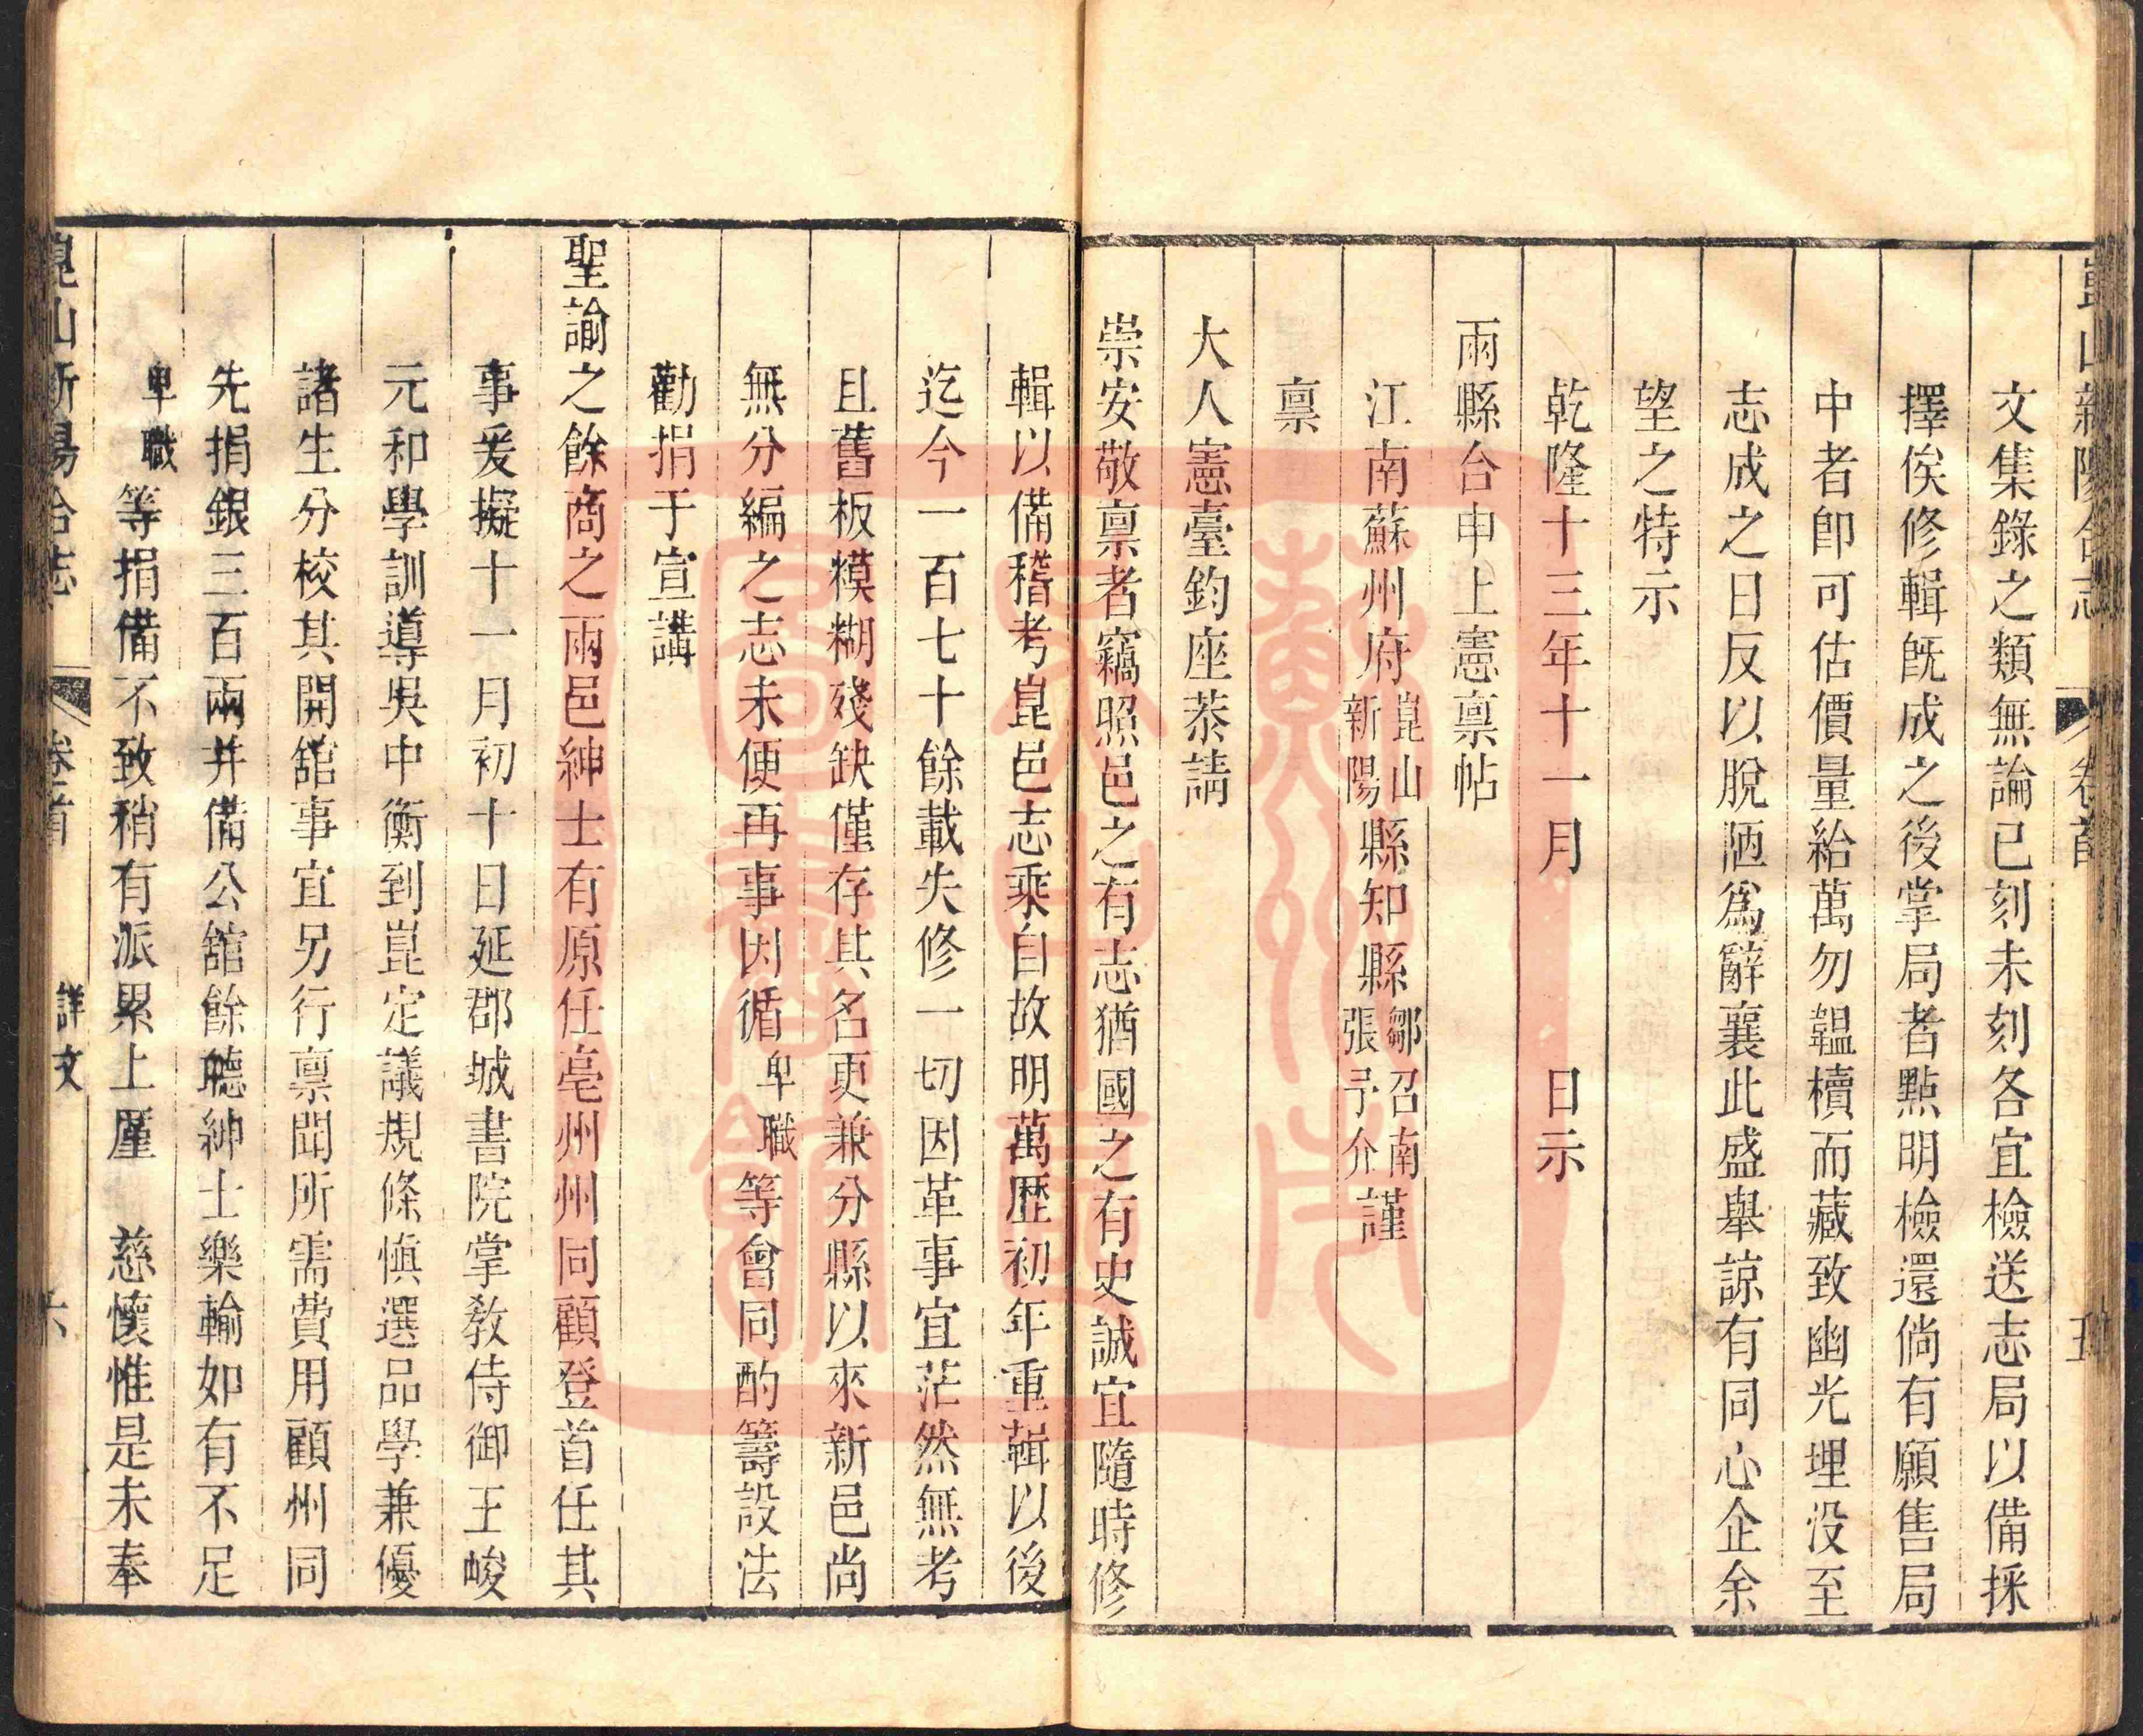 崑山新陽合志
卷首
五
文集錄之類無論已刻未刻各宜檢送志局以備採
擇俟修輯旣成之後掌局者點明檢還倘有願售局
中者卽可估價量給萬勿韞櫝而藏致幽光埋没至
志成之日反以脫陋爲辭襄此盛舉諒有同心企余
望之特示
乾隆十三年十一月 日示
兩縣合申上憲禀帖
江南蘇州府崑山新陽縣知縣鄒召南張予介謹
禀
大人憲臺鈞座恭請
崇安敬禀者竊照邑之有志猶國之有史誠宜隨時修
輯以備稽考崑邑志乘自故明萬歷初年重輯以後
迄今一百七十餘載失修一切因革事宜茫然無考
且舊板糢糊殘缺僅存其名更兼分縣以來新邑尚
無分編之志未便再事因循卑職等會同酌籌設法
勸捐于宣講
聖諭之餘商之兩邑紳士有原任亳州州同顧登首任其
事爰擬十一月初十日延郡城書院掌敎侍御王峻
元和學訓導吳中衡到崑定議規條愼選品學兼優
諸生分校其開舘事宜另行禀聞所需費用顧州同
先捐銀三百兩并備公舘餘聽紳士樂輸如有不足
卑職等捐備不致稍有派累上厪 慈懷惟是未奉
崑山新陽合志
卷首
詳文
六
蘇州市
圖書館